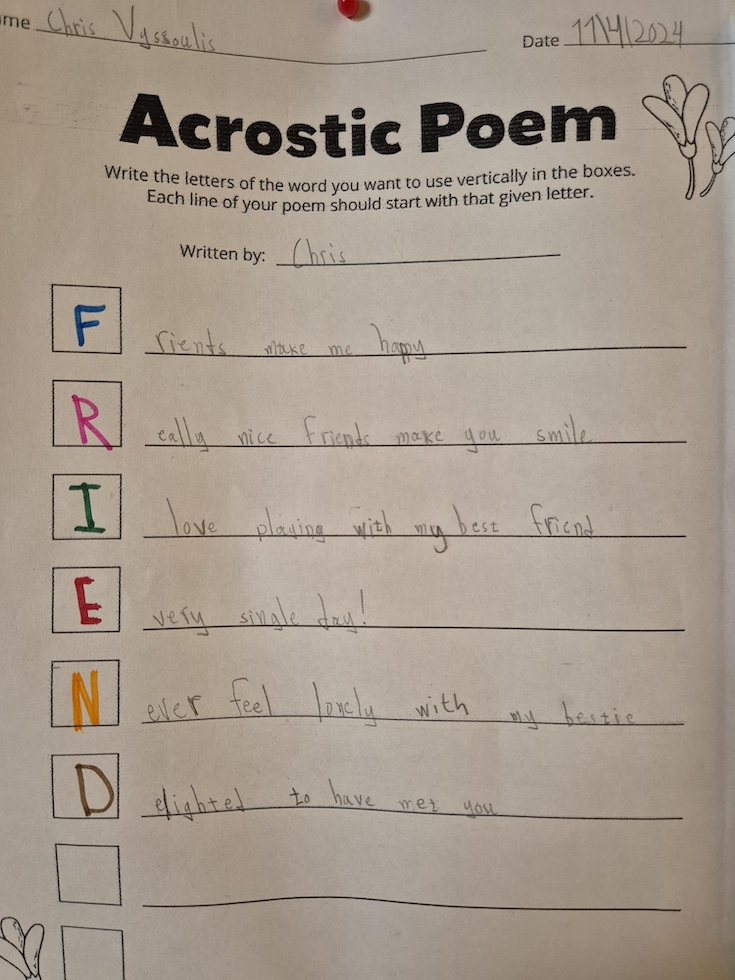 me Chris Vyssoulis
Date 11\4\2024
Acrostic Poem
Write the letters of the word you want to use vertically in the boxes.
Each line of your poem should start with that given letter.
Written by: Chris
F rients make me happy
R eally nice friends make you smile
I love playing with my best friend
E very single day!
N ever feel lonely with my bestie
D elighted to have met you